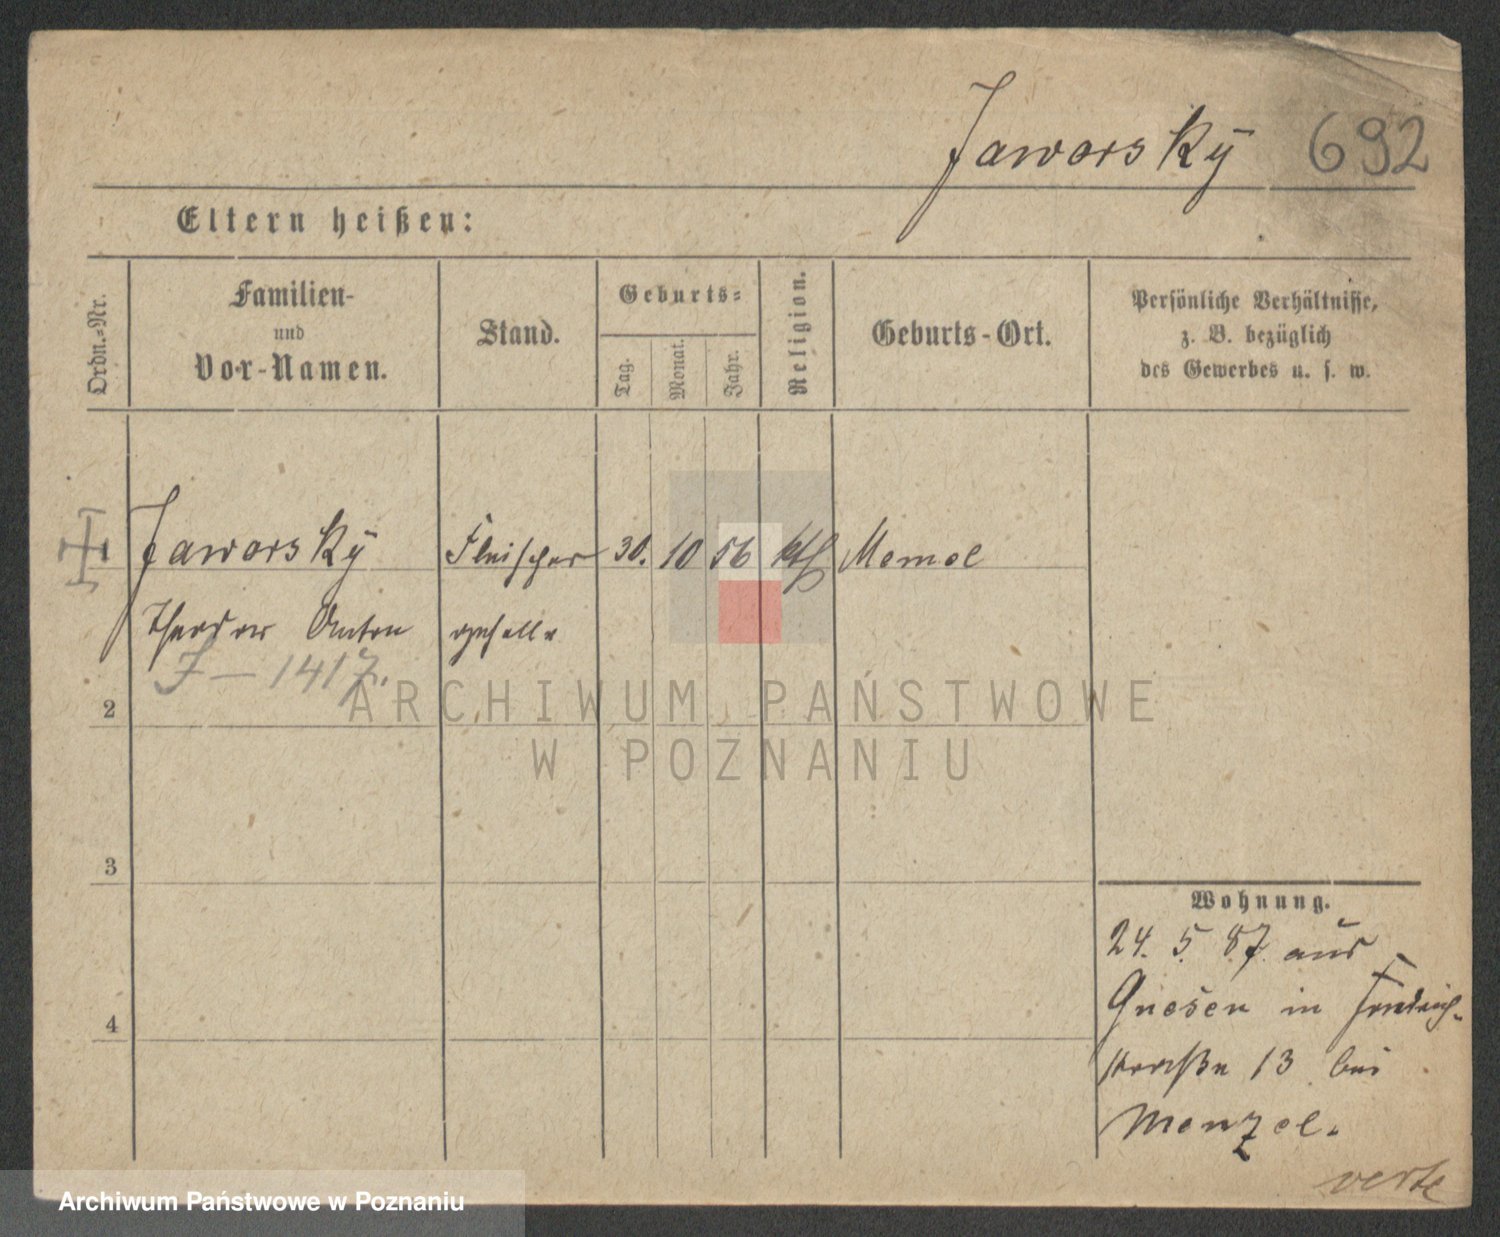 Jaworsky 692
Eltern heißen:
Ordn.-Nr.
Familien-
und
Vor-Namen.
Stand.
Geburts-
Tag.
Monat.
Jahr.
Religion.
Geburts-Ort.
Persönliche Verhältnisse,
z. B. bezüglich
des Gewerbes u. s. w.
1 Jaworsky Fleischer 30. 10 56 kth Memel
Theodor Anton geselle
J - 1417.
2
3
4
Wohnung.
24. 5. 87. aus
Gnesen in Friedrich-
straße 13 bei
Menzel.
verte
ARCHIWUM PAŃSTWOWE
W POZNANIU
Archiwum Państwowe w Poznaniu